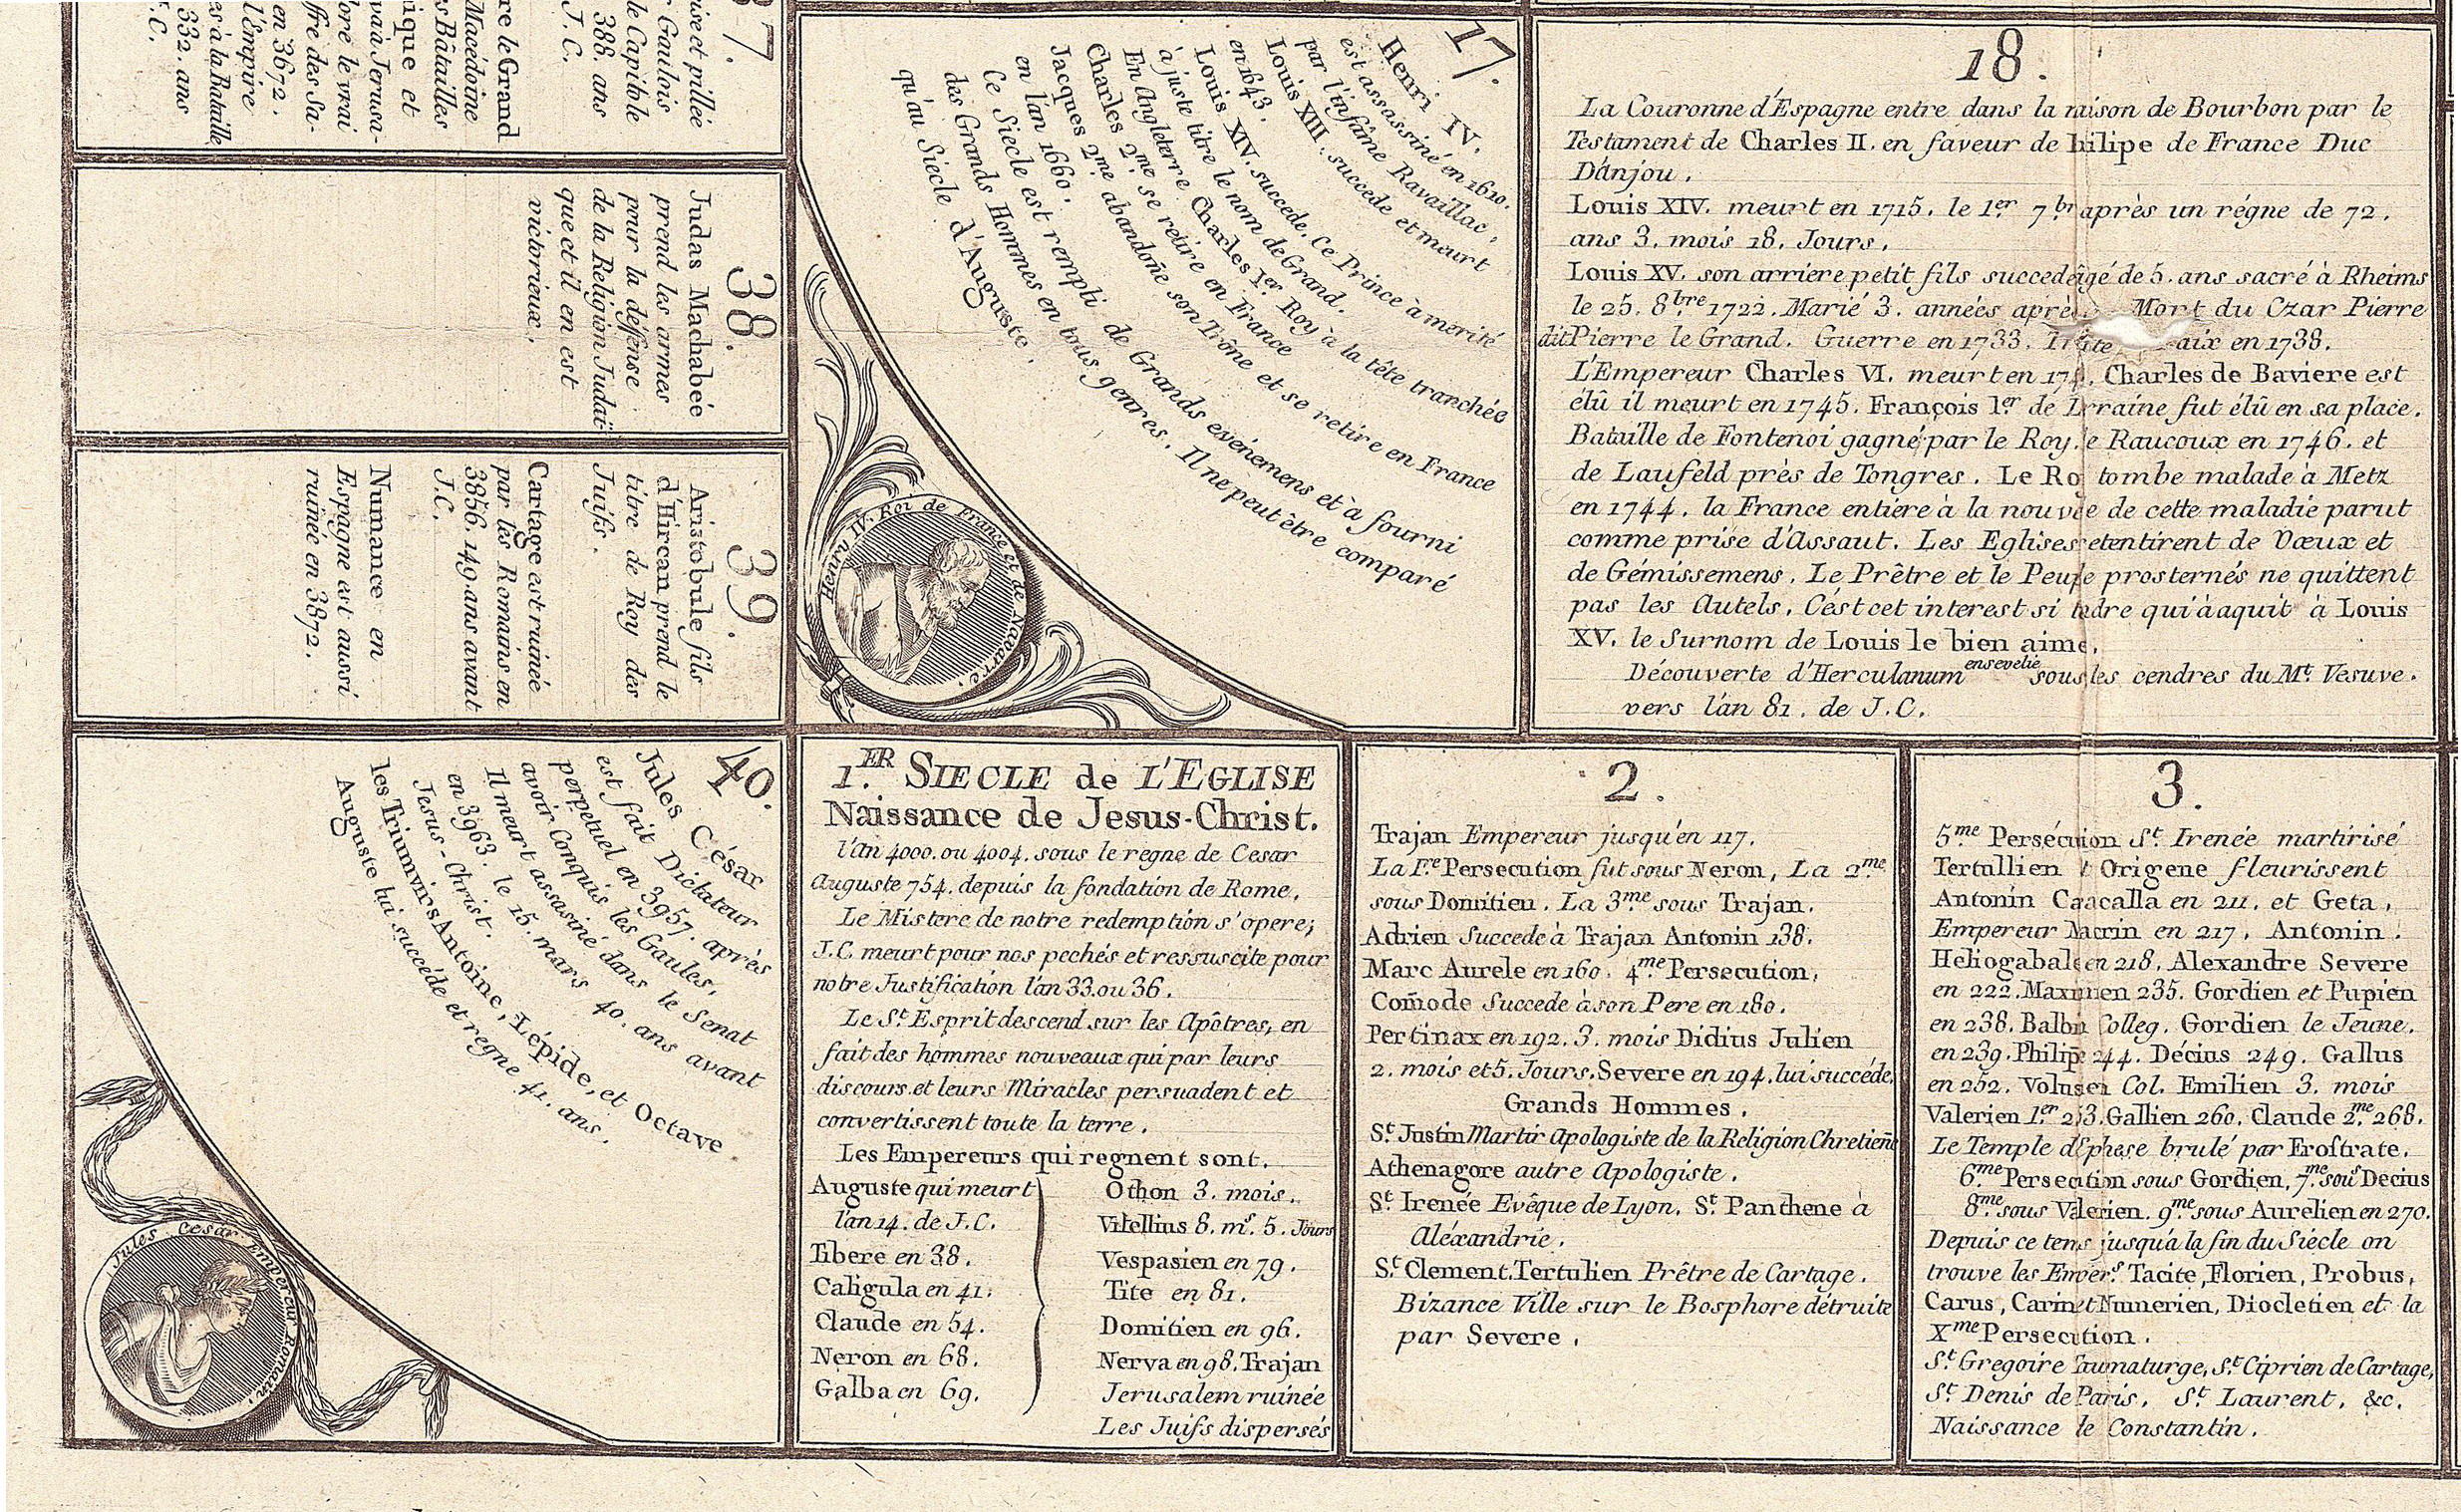 37.
rise et pillée
r Gaulois
le Capitole
388. ans
J. C.
re le Grand
Macédoine
s Bâtailles
ique et
va à Jerusa-
dore le vrai
ffre des Sa-
en 3672.
l'Empire
s à la Bataille
332. ans
C.
38.
Judas Machabée
prend les armes
pour la deffense
de la Religion Judaï
que et il en est
victorieux.
39.
Aristobule fils
d'Hircan prend le
titre de Roy des
Juifs.
Cartage est ruinée
par les Romains en
3856. 149 ans avant
J.C.
Numance en
Espagne est aussi
ruinée en 3872.
40.
Jules César
est fait Dictateur
perpetuel en 3957. après
avoir Conquis les Gaules,
Il meurt assasiné dans le Senat
en 3963. le 15. mars 40. ans avant
Jesus-Christ.
les Triumvirs Antoine, Lépide, et Octave
Auguste lui succéde et regne 41. ans.
Jules Cesar Empereur Romain.
17.
Henri IV.
est assassiné en 1610.
par l'infâme Ravaillac,
Louis XIII. succede et meurt
en 1643.
Louis XIV. succede. Ce Prince à merité
à juste titre le nom de Grand.
En Angleterre Charles 1er Roy à la tête tranchée
Charles 2me se retire en France
Jacques 2me abandoñe son Trône et se retire en France
en l'an 1660.
Ce Siecle est rempli de Grands evénemens et à fourni
des Grands Hommes en tous genres. Il ne peut être comparé
qu'au Siecle d'Auguste.
Henry IV. Roi de France et de Navarre.
18.
La Couronne d'Espagne entre dans la maison de Bourbon par le
Testament de Charles II. en faveur de hilipe de France Duc
D'anjou.
Louis XIV. meurt en 1715. le 1er 7br après un régne de 72.
ans 3. mois 18. Jours.
Louis XV. son arriere petit fils succede âgé de 5. ans sacré à Rheims
le 25. 8bre 1722. Marié 3. années après Mort du Czar Pierre
dit Pierre le Grand. Guerre en 1733. aix en 1738.
L'Empereur Charles VI. meurt en 174. Charles de Baviere est
élû il meurt en 1745. François 1er de Lrraine fut élû en sa place.
Bataille de Fontenoi gagné par le Roy, e Raucoux en 1746. et
de Laufeld près de Tongres. Le Ro tombe malade à Metz
en 1744. la France entiere à la nouvele de cette maladie parut
comme prise d'Assaut. Les Eglises retentirent de Vœux et
de Gémissemens. Le Prêtre et le Peuple prosternés ne quittent
pas les Autels. C'ést cet interest si tedre qui à aquit à Louis
XV. le Surnom de Louis le bien aimé.
Découverte d'Herculanum ensevelie sous les cendres du Mt. Vesuve.
vers l'an 81. de J.C.
1.ER SIECLE de L'EGLISE
Naissance de Jesus-Christ.
l'An 4000. ou 4004. sous le regne de Cesar
Auguste 754. depuis la fondation de Rome.
Le Mistere de notre redemption s'opere;
J.C. meurt pour nos pechés et ressuscite pour
notre Justification l'an 33. ou 36.
Le St. Esprit descend sur les Apôtres, en
fait des hommes nouveaux qui par leurs
discours et leurs Miracles persuadent et
convertissent toute la terre.
Les Empereurs qui regnent sont.
Auguste qui meurt
l'an 14. de J.C.
Tibere en 38.
Caligula en 41.
Claude en 54.
Neron en 68.
Galba en 69.
Othon 3. mois.
Vitellius 8. ms. 5. Jours
Vespasien en 79.
Tite en 81.
Domitien en 96.
Nerva en 98. Trajan
Jerusalem ruinée
Les Juifs dispersés
2.
Trajan Empereur jusqu'en 117.
La 1.re Persecution fut sous Neron, La 2me
sous Domitien. La 3me sous Trajan.
Adrien Succede à Trajan Antonin 138.
Marc Aurele en 160. 4me Persecution,
Com̄ode Succede à son Pere en 180.
Pertinax en 192. 3. mois Didius Julien
2. mois et 5. Jours. Severe en 194. lui succéde.
Grands Hommes.
St. Justin Martir Apologiste de la Religion Chretieñe
Athenagore autre Apologiste.
St. Irenée Evêque de Lyon. St. Panthene à
Aléxandrie.
St. Clement. Tertulien Prêtre de Cartage.
Bizance Ville sur le Bosphore détruite
par Severe.
3.
5me Persécution St. Irenée martirisé
Tertullien t Origene fleurissent
Antonin Caracalla en 211. et Geta,
Empereur Macrin en 217. Antonin.
Heliogabale en 218. Alexandre Severe
en 222. Maximien 235. Gordien et Pupien
en 238. Balbin Colleg. Gordien le Jeune.
en 239. Philipe 244. Décius 249. Gallus
en 252. Volusien Col. Emilien 3. mois
Valerien 1er 253. Gallien 260. Claude 2me 268.
Le Temple d'Ephese brulé par Erostrate.
6me Persecution sous Gordien, 7me sous Decius
8me sous Valerien. 9me sous Aurelien en 270.
Depuis ce tems jusqu'a la fin du Siécle on
trouve les Empers. Tacite, Florien, Probus,
Carus, Carin et Numerien, Diocletien et la
Xme Persecution.
St. Gregoire Taumaturge, St. Ciprien de Cartage,
St. Denis de Paris. St. Laurent. &c.
Naissance de Constantin.